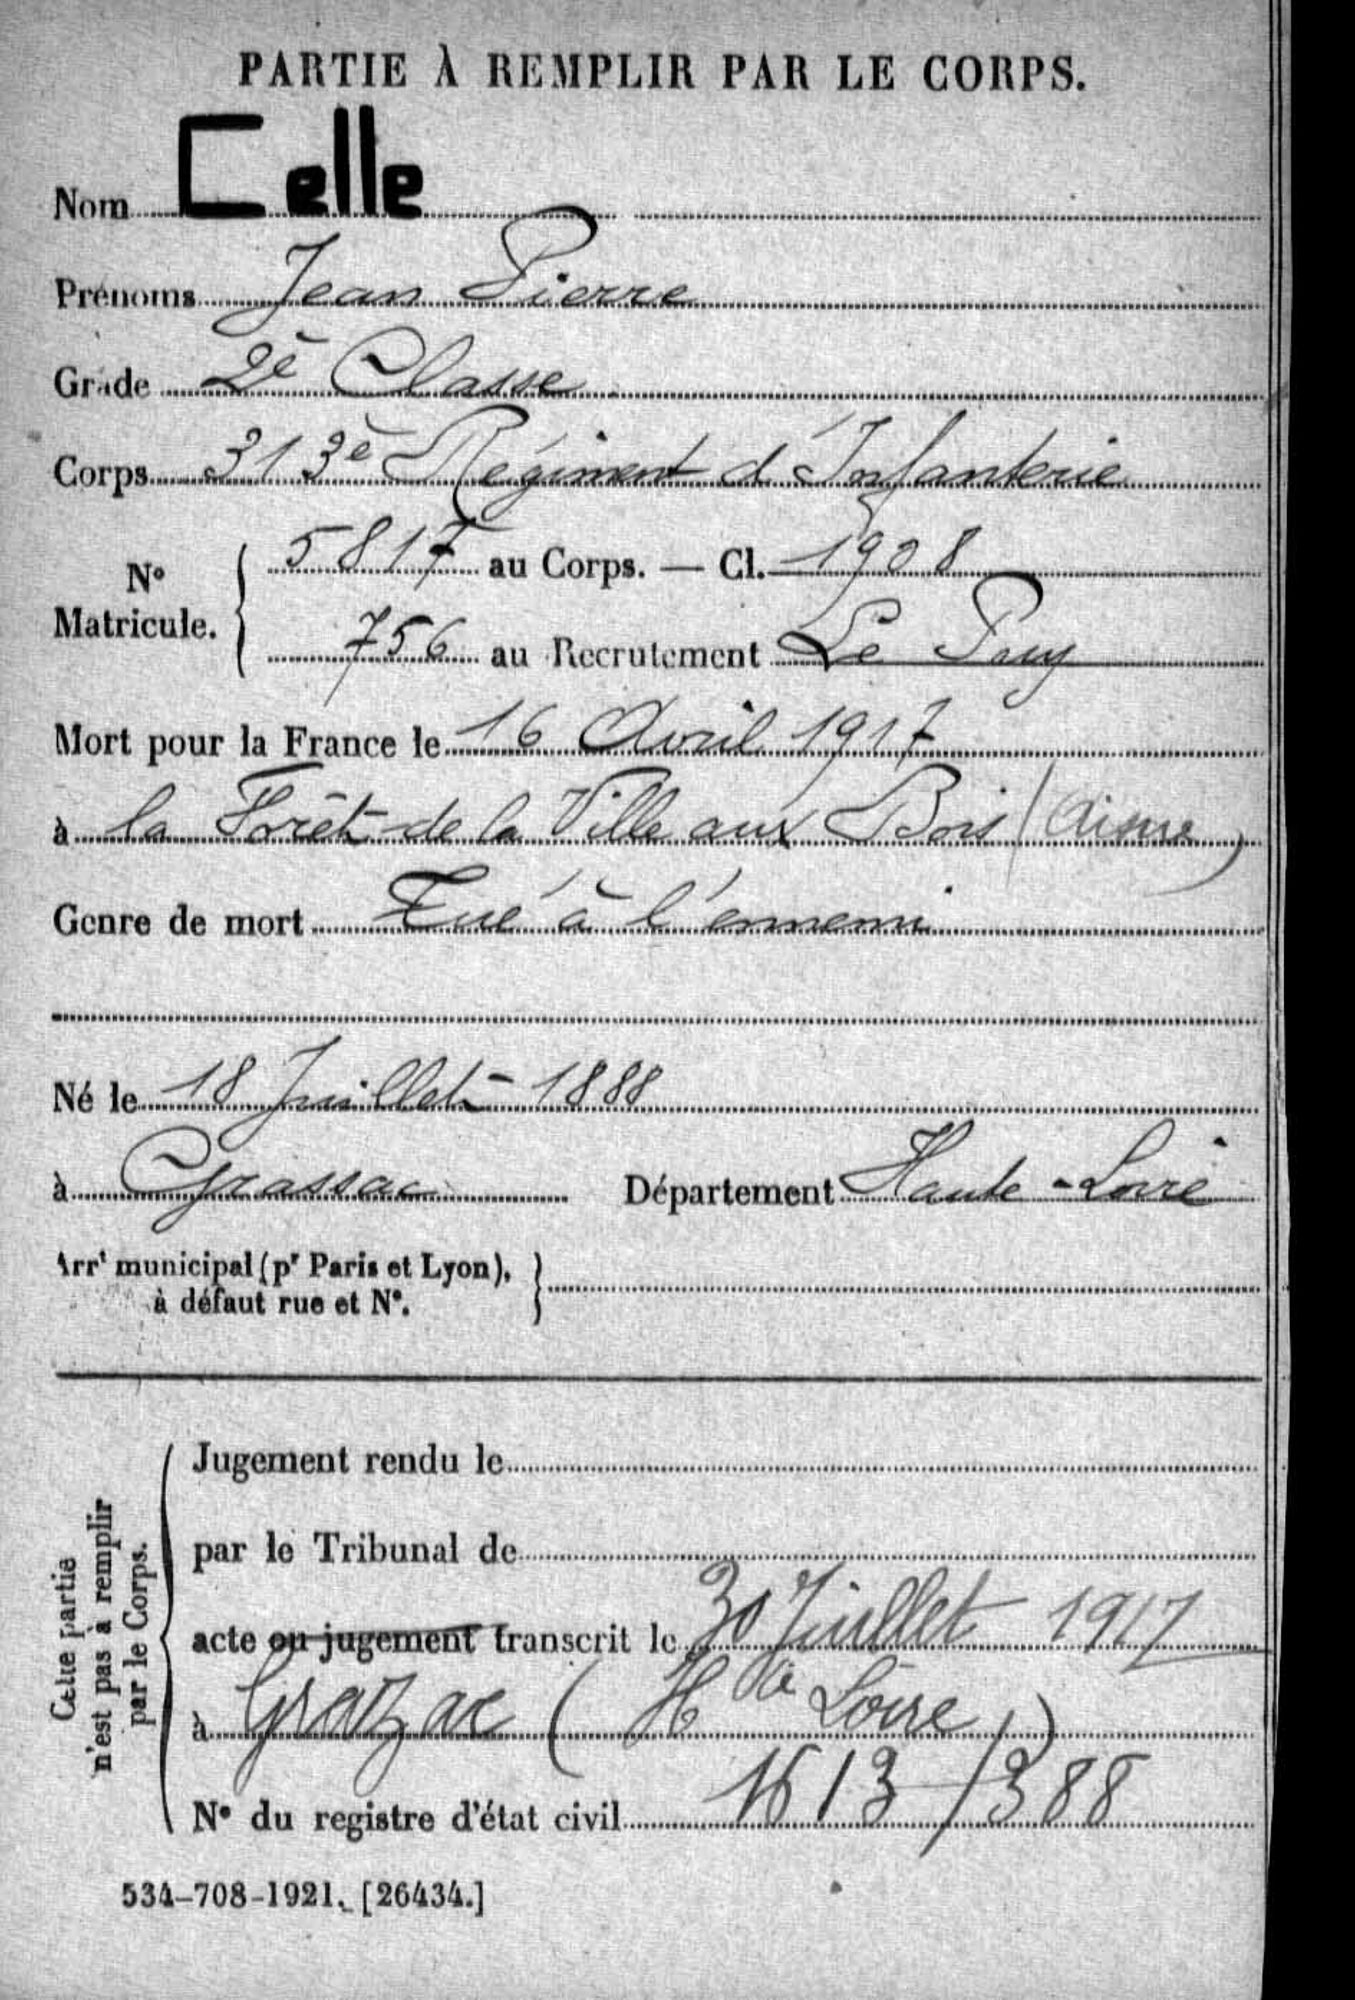 PARTIE À REMPLIR PAR LE CORPS.
Nom Celle
Prénoms Jean Pierre
Grade 2è Classe
Corps 313è Régiment d'Infanterie
N° Matricule. 5817 au Corps. — Cl. 1908
756 au Recrutement Le Puy
Mort pour la France le 16 Avril 1917
à la Forêt de la Ville aux Bois (Aisne)
Genre de mort Tué à l'ennemi
Né le 18 Juillet 1888
à Grassac Département Haute-Loire
Arrt municipal (pr Paris et Lyon),
à défaut rue et N°.
Cette partie
n'est pas à remplir
par le Corps.
Jugement rendu le
par le Tribunal de
acte ou jugement transcrit le 30 Juillet 1917
à Grazac (Hte Loire)
N° du registre d'état civil 1613/388
534-708-1921. [26434.]